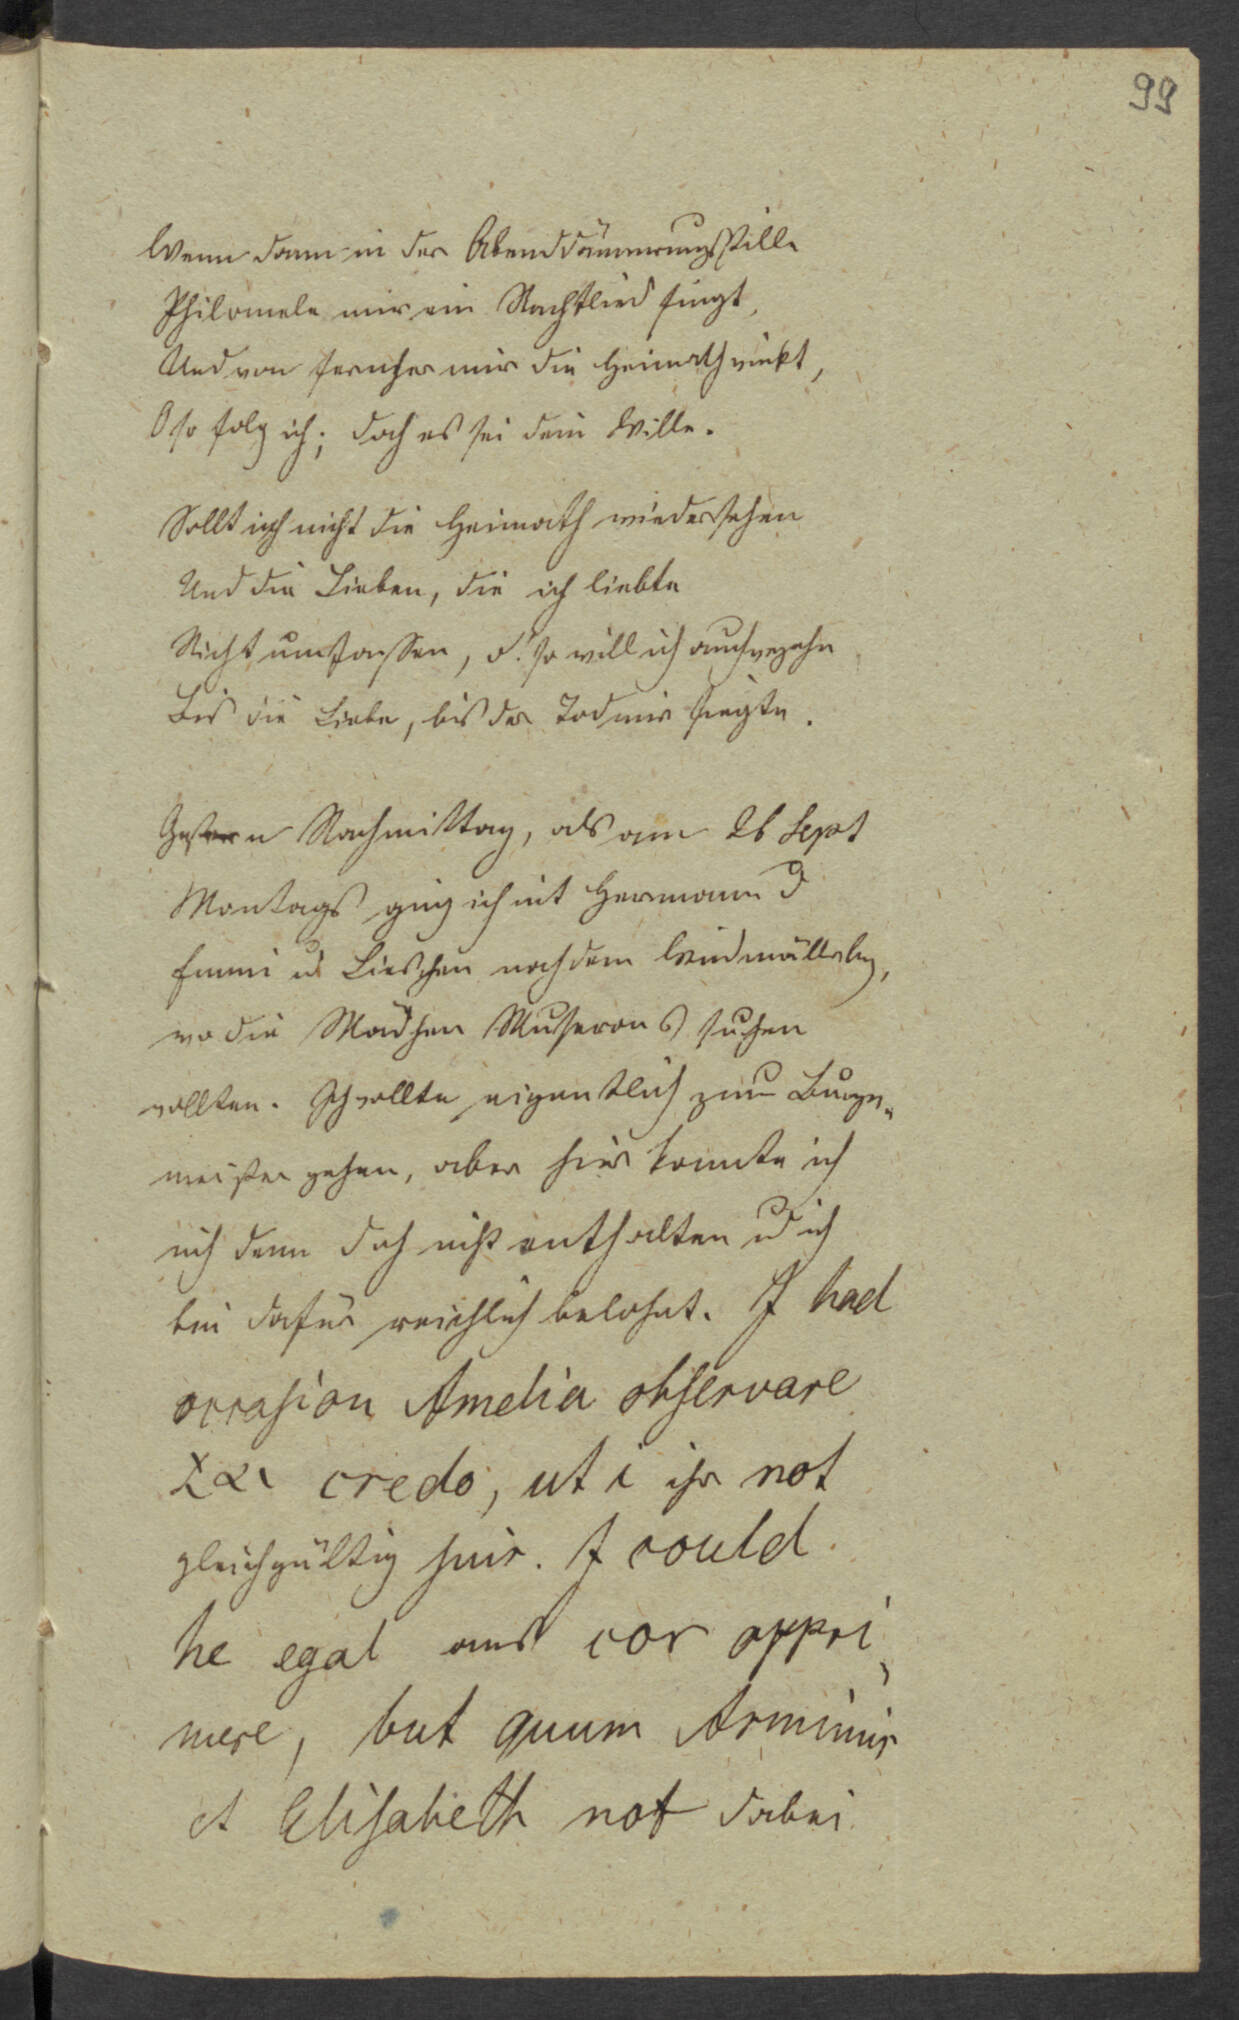 99
Wenn dann in der Abenddämmerungsstille
Philomele mir ein Nachtlied singt,
Und von fernher mir die Heimath winkt,
O so folg ich; doch es sei dein Wille.
Sollt ich nicht die Heimath wiedersehen
Und die Lieben, die ich liebte
Nicht umfassen, o! so will ich auch
Bis die Liebe, bis der Tod mir siegte.
Gestern Nachmittag, als am 26 Sept
Montags ging ich mit Hermann
Emmi u Lieschen nach dem
wo die Mädchen Muserons suchen
wollten. Ich wollte eigentlich zum Burge-
meister gehen, aber hier konnte ich
mich denn doch nicht enthalten u ich
bin dafür reichlich belohnt. I had
occasion Amelia observare
και credo, ut i ihr not
gleichgültig suis. I could
he egal ans cor oppri-
mere, but quum Arminius
et Elisabeth not dabei